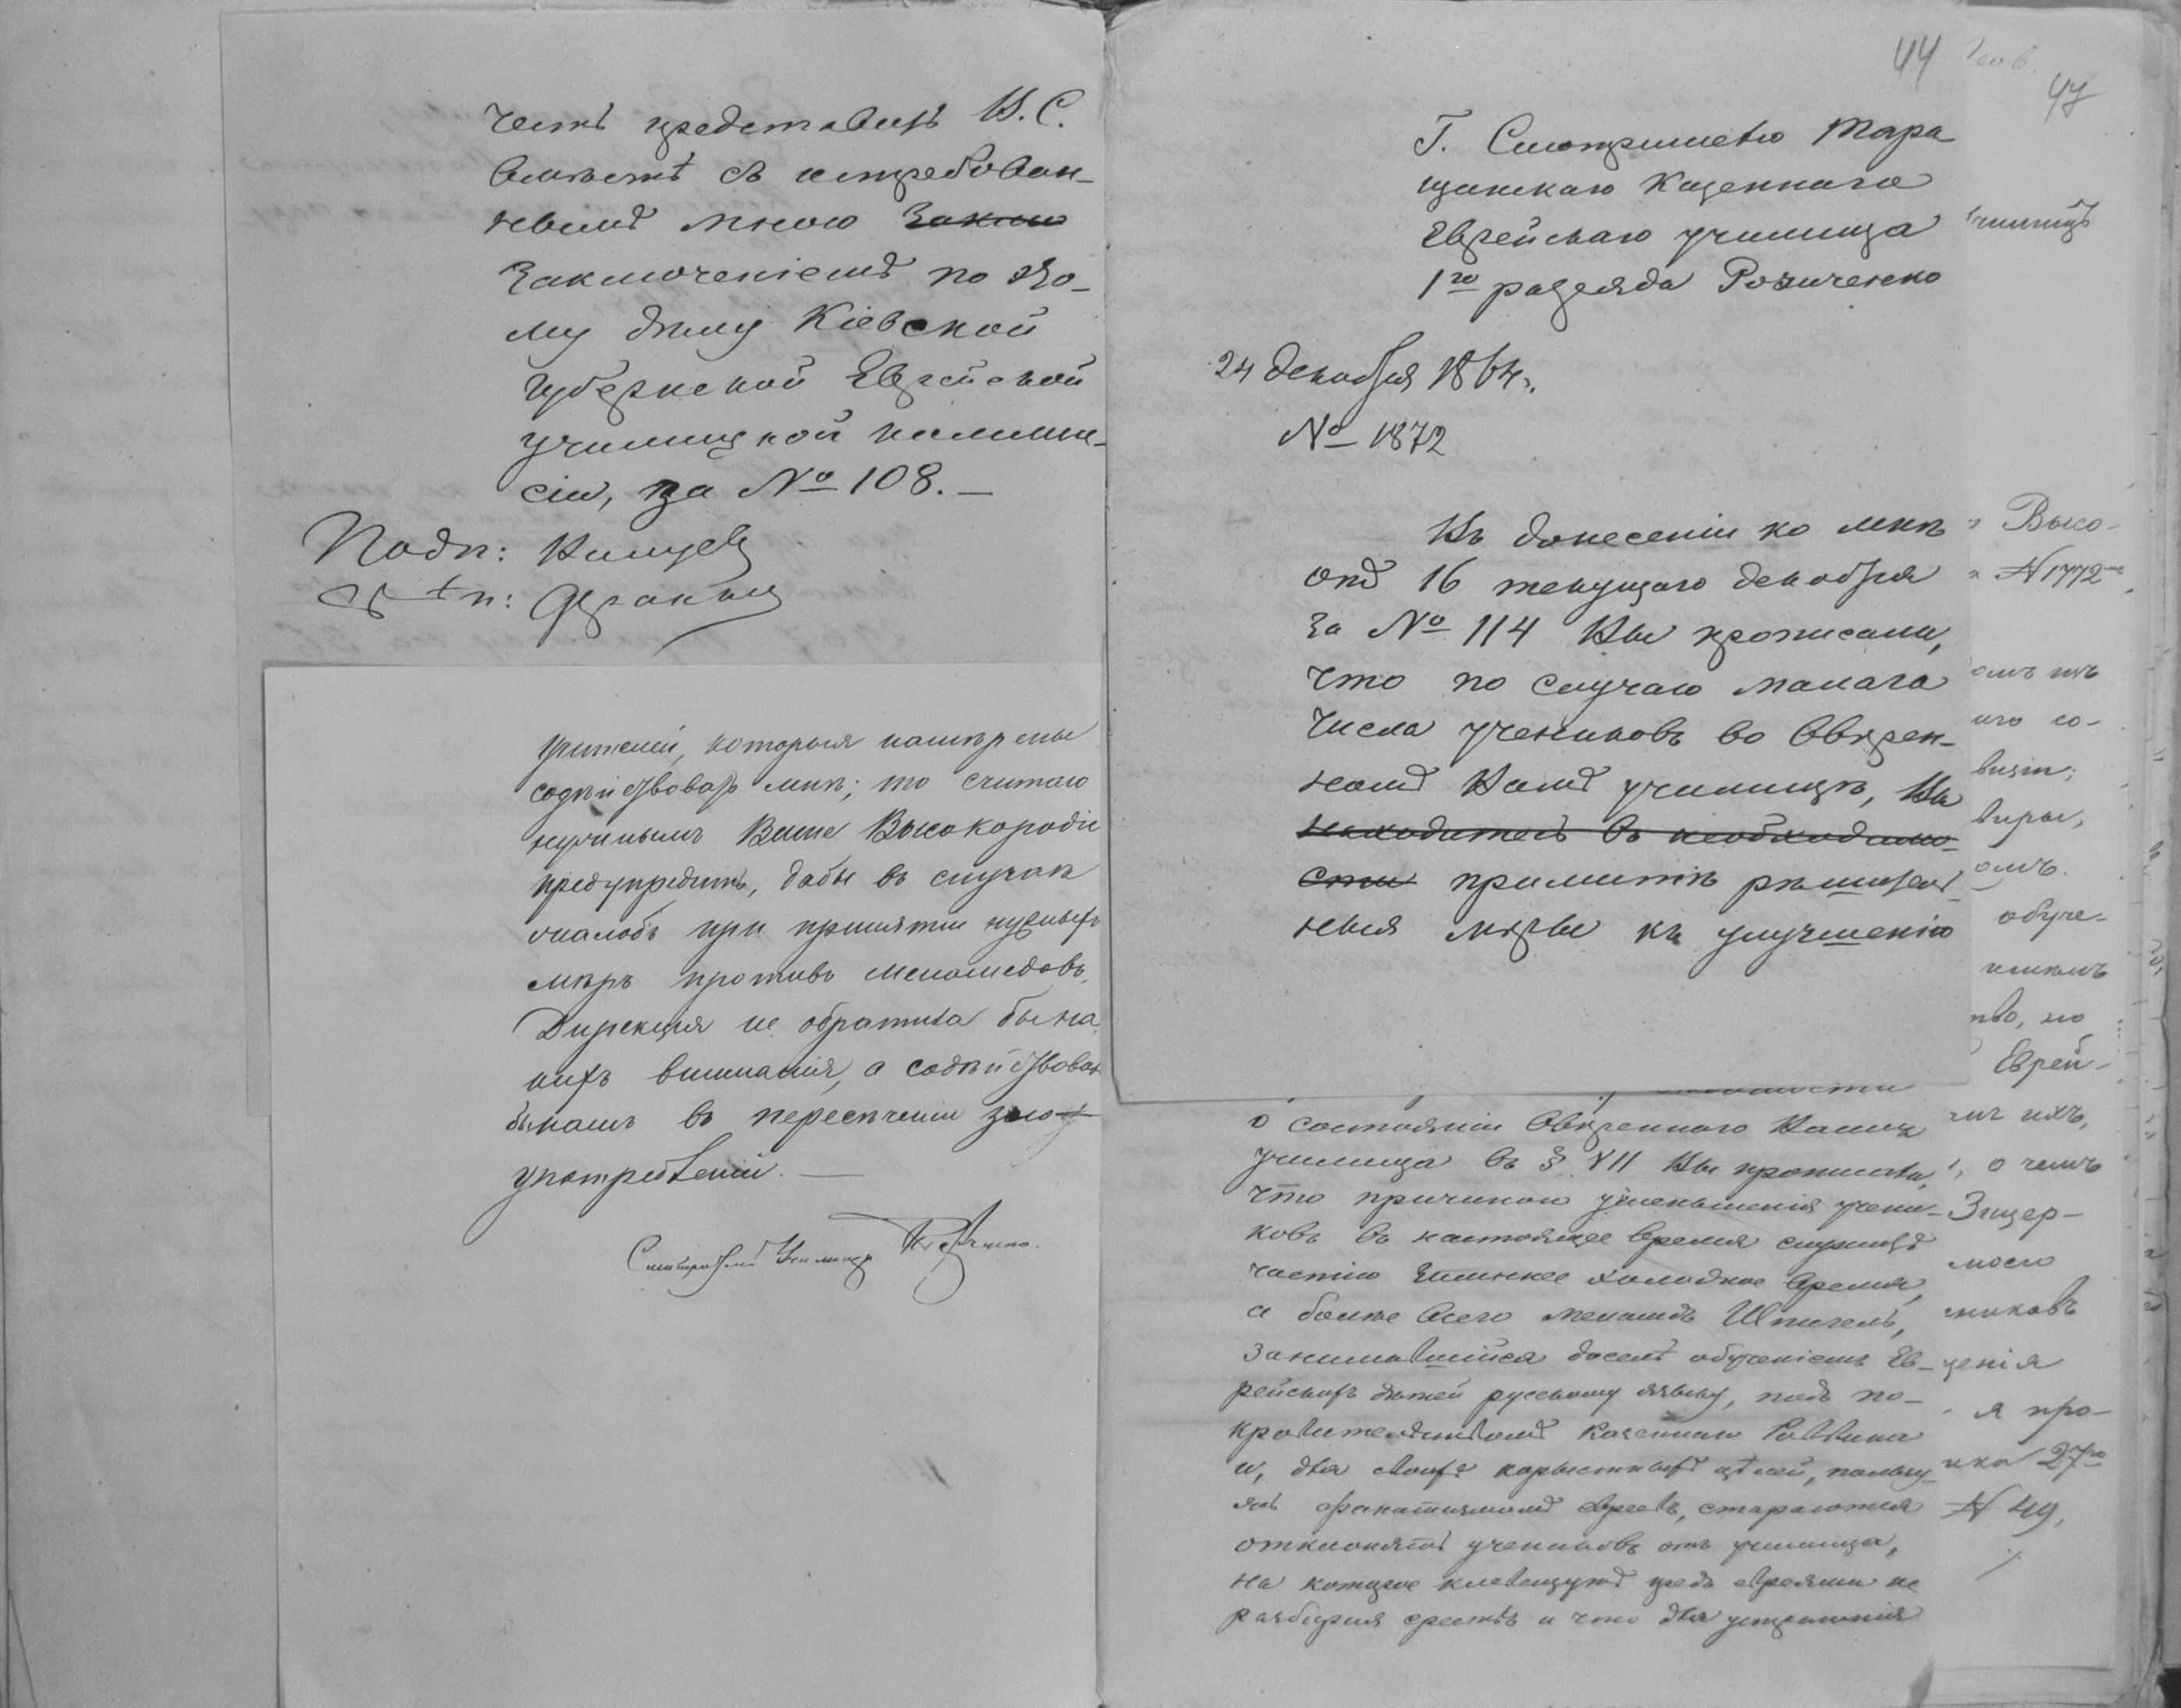 честь представить В. С.
вместѣ съ истребован-
нымъ мною заклю
заключеніемъ по это-
му дѣлу Кіевской
Губернской Еврейской
училищной коммис-
сіи, за № 108. —
Подп:
учителей, которыя намѣрены
содѣйствовать мнѣ; то считаю
нужнымъ Ваше Высокородіе
предупредить, дабы въ случаѣ
жалобъ при принятіи нужныхъ
мѣръ противъ меламедовъ,
Дирекція не обратила бы на
нихъ вниманія, а содѣйствовала
бы намъ въ пересѣченіи зло-
употребленій. —
Смотритель Училища
44
47
Г. Смотрителю Тара
щанскаго Казеннаго
Еврейскаго училища
1го разряда Розиченко
24 декабря 1864 г.
№ 1872
Въ донесеніи ко мнѣ
отъ 16 текущаго декабря
за № 114 Вы прописали,
что по случаю малаго
числа учениковъ во ввѣрен-
номъ Вамъ училищѣ, Вы
находитесь въ необходимо-
сти примите рѣшитель
ныя мѣры къ улучшенію
о состояніи ввѣреннаго Вамъ
училища въ § VII Вы прописали,
что причиною уменьшенія учени-
ковъ въ настоящее время служитъ
частію зимнее холодное время,
а болѣе всего меламдъ Шпигель,
занимавшійся доселѣ обученіемъ Ев-
рейскихъ дѣтей русскому языку, подъ по-
кровительствомъ Казеннаго Раввина
и, для своихъ корыстныхъ цѣлей, пользу
ясь фанатизмомъ евреевъ, стараются
отклонять учениковъ отъ училища,
на которое клевещутъ предъ евреями не
разбирая средствъ и что для устраненія
Высо-
№ 1772
омъ
его со-
визіи;
тиры,
омъ.
обуче-
тво, но
Еврей-
ихъ,
о чемъ
Зицер-
моего
никовъ
ценія
я про-
27го
№ 49,